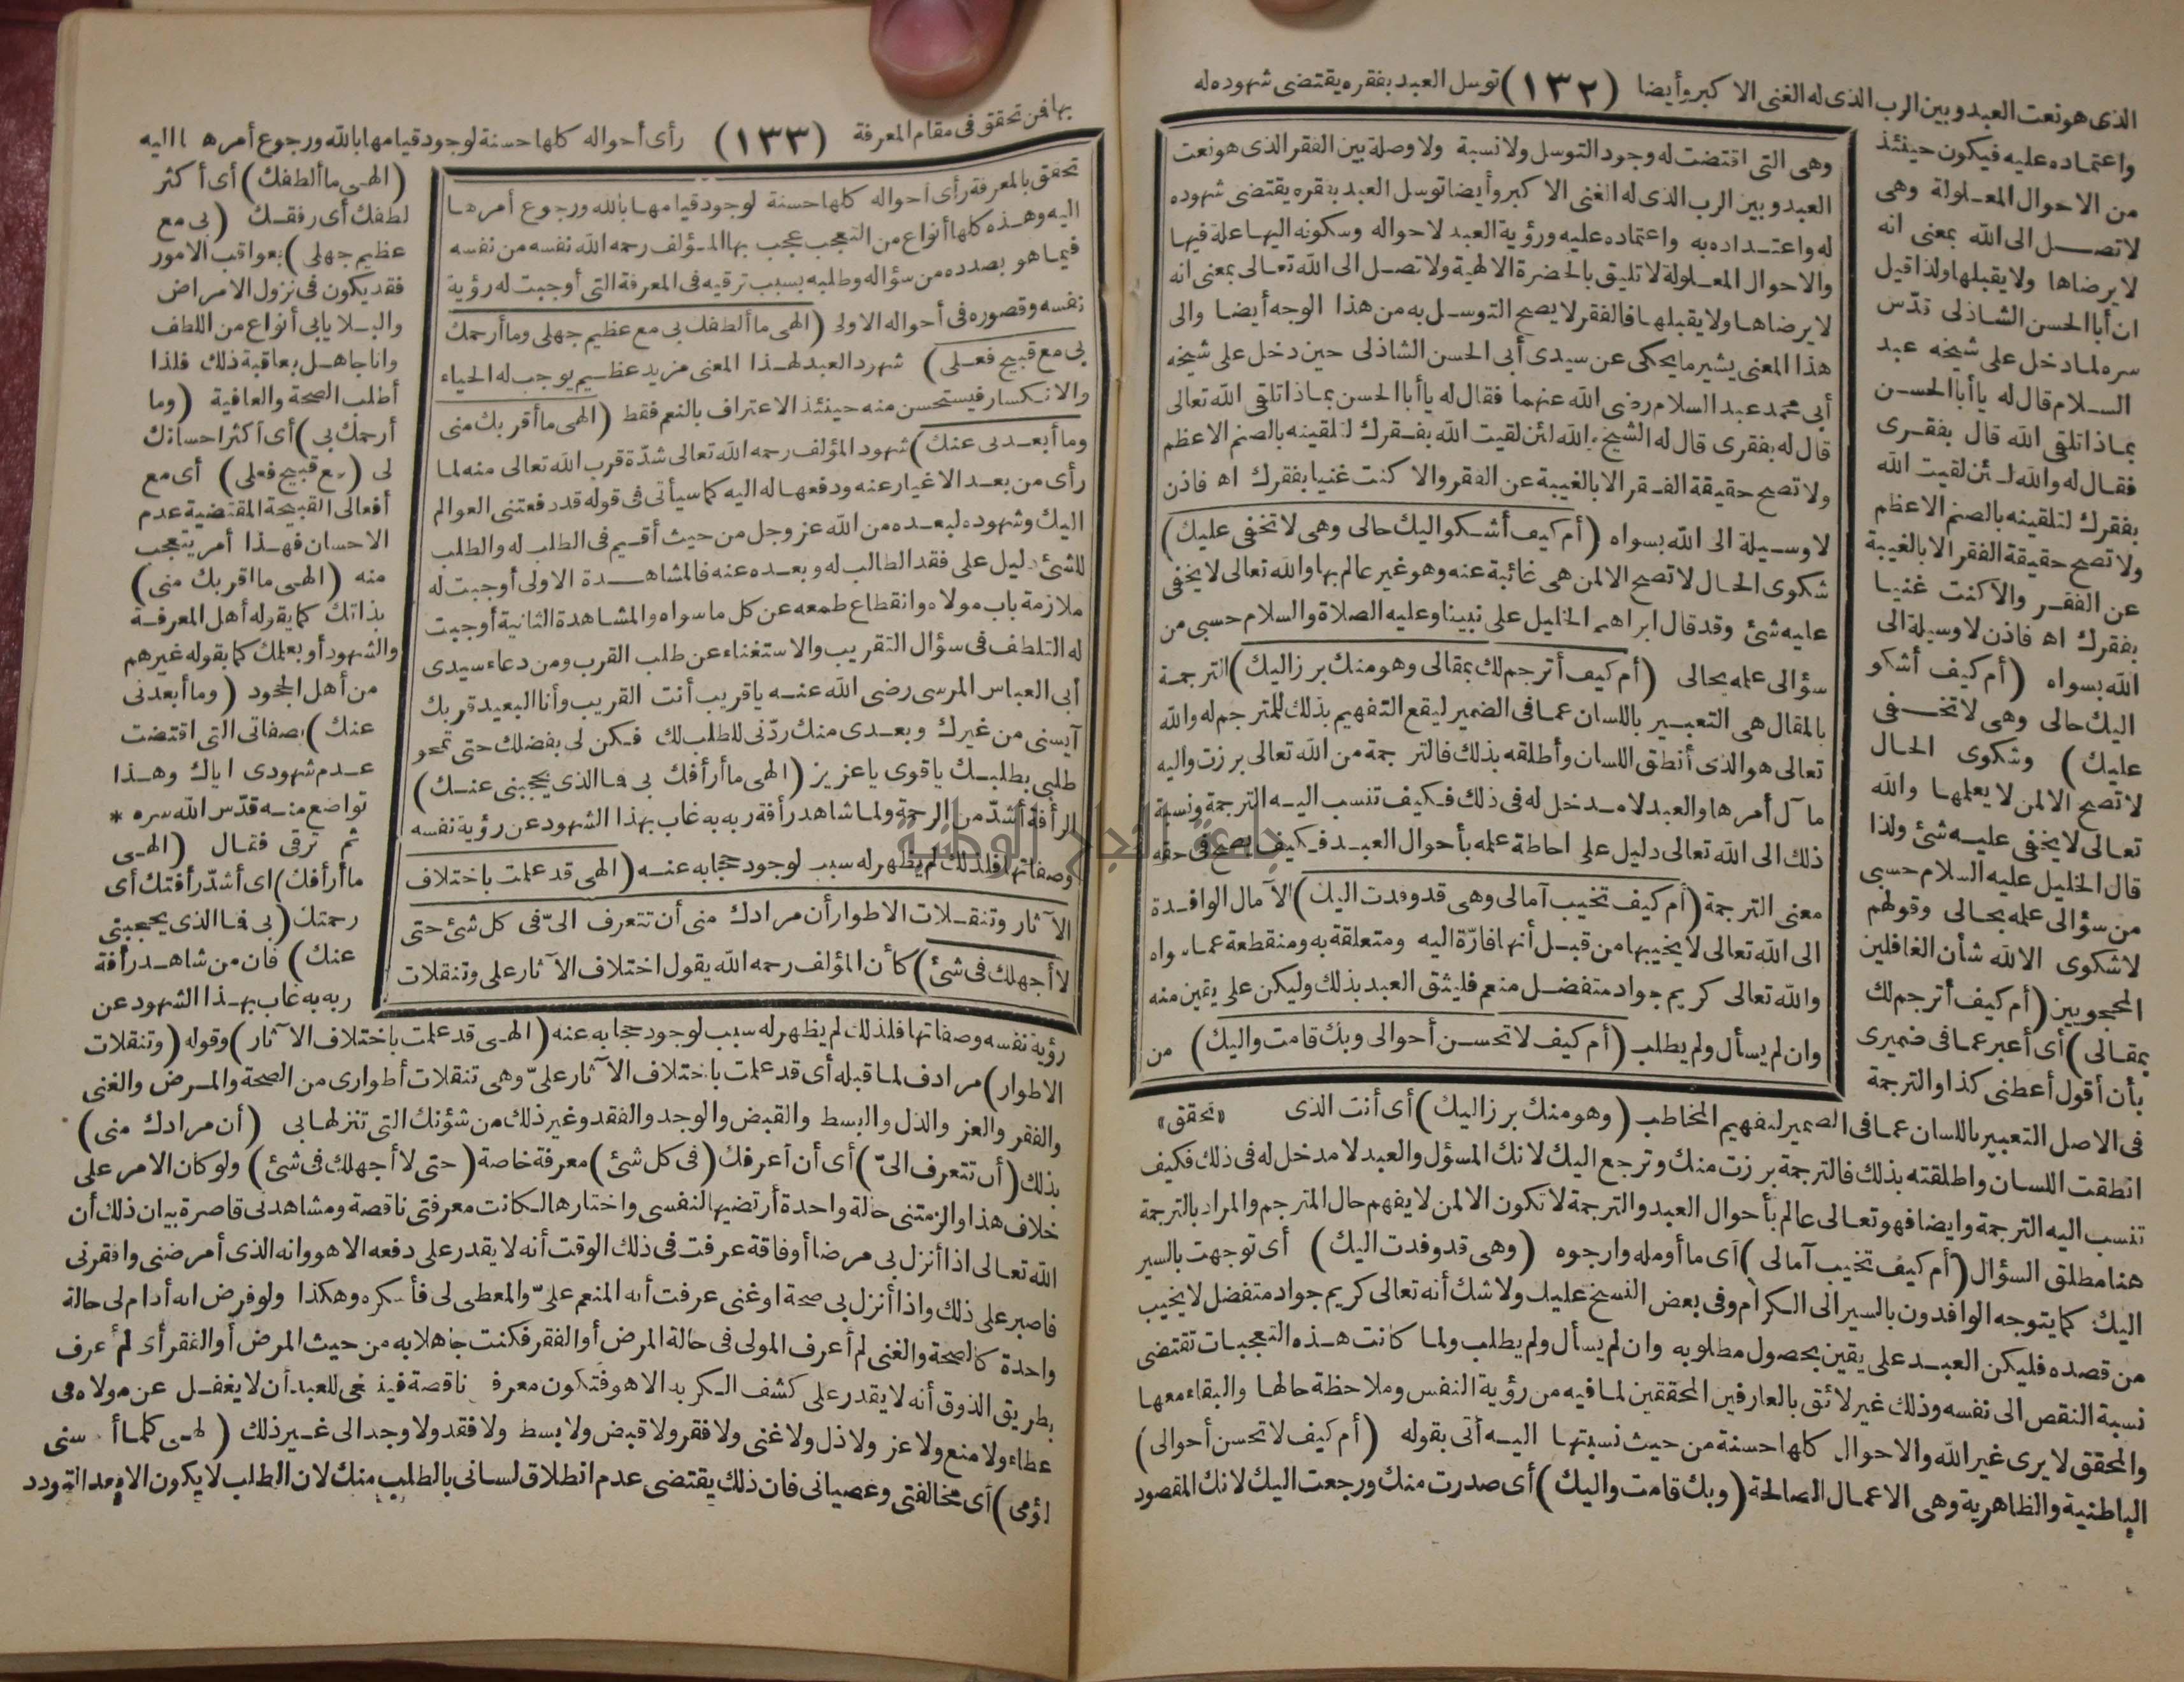 الذى هو نعت العبد وبين الرب الذى له الغنى الاكبر وأيضا (١٣٢) توسل العبد بفقره يقتضى شهوده له
واعتماده عليه فيكون حينئذ
من الاحوال المعلولة وهى
لا تصل الى الله بمعنى انه
لا يرضاها ولا يقبلها ولذا قيل
ان أبا الحسن الشاذلى قدّس
سره لما دخل على شيخه عبد
السلام قال له يا أبا الحسن
بماذا تلقى الله قال بفقرى
فقال له والله لئن لقيت الله
بفقرك لتلقينه بالصنم الاعظم
ولا تصح حقيقة الفقر الا بالغيبة
عن الفقر والا كنت غنيا
بفقرك اه فاذن لا وسيلة الى
الله بسواه (أم كيف أشكو
اليك حالى وهى لا تخفى
عليك) وشكوى الحال
لا تصح الا لمن لا يعلمها والله
تعالى لا يخفى عليه شئ ولذا
قال الخليل عليه السلام حسبى
من سؤالى علمه بحالى وقولهم
لا شكوى الا لله شأن الغافلين
المحجوبين (أم كيف أترجم لك
بمقالى) أى أعبر عما فى ضميرى
بأن أقول أعطنى كذا والترجمة
وهى التى اقتضت له وجود التوسل ولا نسبة ولا وصلة بين الفقر الذى هو نعت
العبد وبين الرب الذى له الغنى الاكبر وأيضا توسل العبد بفقره يقتضى شهوده
له واعتداده به واعتماده عليه ورؤية العبد لاحواله وسكونه اليها علة فيها
والاحوال المعلولة لا تليق بالحضرة الالهية ولا تصل الى الله تعالى بمعنى انه
لا يرضاها ولا يقبلها فالفقر لا يصح التوسل به من هذا الوجه أيضا والى
هذا المعنى يشير ما يحكى عن سيدى أبى الحسن الشاذلى حين دخل على شيخه
أبى محمد عبد السلام رضى الله عنهما فقال له يا أبا الحسن بماذا تلقى الله تعالى
قال له بفقرى قال له الشيخ والله لئن لقيت الله بفقرك لتلقينه بالصنم الاعظم
ولا تصح حقيقة الفقر الا بالغيبة عن الفقر والا كنت غنيا بفقرك اه فاذن
لا وسيلة الى الله بسواه (أم كيف أشكو اليك حالى وهى لا تخفى عليك)
شكوى الحال لا تصح الا لمن هى غائبة عنه وهو غير عالم بها والله تعالى لا يخفى
عليه شئ وقد قال ابراهيم الخليل على نبينا وعليه الصلاة والسلام حسبى من
سؤالى علمه بحالى (أم كيف أترجم لك بمقالى وهو منك برز اليك) الترجمة
بالمقال هى التعبير باللسان عما فى الضمير ليقع التفهيم بذلك للمترجم له والله
تعالى هو الذى أنطق اللسان وأطلقه بذلك فالترجمة من الله تعالى برزت واليه
مآل أمرها والعبد لا مدخل له فى ذلك فكيف تنسب اليه الترجمة ونسبة
ذلك الى الله تعالى دليل على احاطة علمه بأحوال العبد فكيف يصح فى حقه
معنى الترجمة (أم كيف تخيب آمالى وهى قد وفدت اليك) الآمال الوافدة
الى الله تعالى لا يخيبها من قبل أنها فارّة اليه ومتعلقة به ومنقطعة عما سواه
والله تعالى كريم جواد متفضل منعم فليثق العبد بذلك وليكن على يقين منه
وان لم يسأل ولم يطلب (أم كيف لا تحسن أحوالى وبك قامت واليك) من
«تحقق»
فى الاصل التعبير باللسان عما فى الضمير لتفهيم المخاطب (وهو منك برز اليك) أى أنت الذى
انطقت اللسان واطلقته بذلك فالترجمة برزت منك وترجع اليك لانك المسؤل والعبد لا مدخل له فى ذلك فكيف
تنسب اليه الترجمة وايضا فهو تعالى عالم بأحوال العبد والترجمة لا تكون الا لمن لا يفهم حال المترجم والمراد بالترجمة
هنا مطلق السؤال (أم كيف تخيب آمالى) أى ما أومله وارجوه (وهى قد وفدت اليك) أى توجهت بالسير
اليك كما يتوجه الوافدون بالسير الى الكرام وفى بعض النسخ عليك ولا شك أنه تعالى كريم جواد متفضل لا يخيب
من قصده فليكن العبد على يقين بحصول مطلوبه وان لم يسأل ولم يطلب ولما كانت هذه التعجبات تقتضى
نسبة النقص الى نفسه وذلك غير لائق بالعارفين المحققين لما فيه من رؤية النفس وملاحظة حالها والبقاء معها
والمحقق لا يرى غير الله والاحوال كلها حسنة من حيث نسبتها اليه أتى بقوله (أم كيف لا تحسن أحوالى)
الباطنية والظاهرية وهى الاعمال الصالحة (وبك قامت واليك) أى صدرت منك ورجعت اليك لانك المقصود
بها فمن تحقق فى مقام المعرفة (١٣٣) رأى أحواله كلها حسنة لوجود قيامها بالله ورجوع أمرها اليه
تحقق بالمعرفة رأى أحواله كلها حسنة لوجود قيامها بالله ورجوع أمرها
اليه وهذه كلها أنواع من التعجب عجب بها المؤلف رحمه الله نفسه من نفسه
فيما هو بصدده من سؤاله وطلبه بسبب ترقيه فى المعرفة التى أوجبت له رؤية
نفسه وقصوره فى أحواله الاولى (الهى ما ألطفك بى مع عظيم جهلى وما أرحمك
بى مع قبيح فعلى) شهود العبد لهذا المعنى مزيد عظيم يوجب له الحياء
والانكسار فيستحسن منه حينئذ الاعتراف بالنعم فقط (الهى ما أقربك منى
وما أبعدنى عنك) شهود المؤلف رحمه الله تعالى شدّة قرب الله تعالى منه لما
رأى من بعد الاغيار عنه ودفعها له اليه كما سيأتى فى قوله قد دفعتنى العوالم
اليك وشهوده لبعده من الله عز وجل من حيث أقيم فى الطلب له والطلب
للشئ دليل على فقد الطالب له وبعده عنه فالمشاهدة الاولى أوجبت له
ملازمة باب مولاه وانقطاع طمعه عن كل ما سواه والمشاهدة الثانية أوجبت
له التلطف فى سؤال التقريب والاستغناء عن طلب القرب ومن دعاء سيدى
أبى العباس المرسى رضى الله عنه يا قريب أنت القريب وأنا البعيد قربك
آيسنى من غيرك وبعدى منك ردّنى للطلب لك فكن لى بفضلك حتى تمحو
طلبى بطلبك يا قوى يا عزيز (الهى ما أرأفك بى فما الذى يحجبنى عنك)
الرأفة أشدّ من الرحمة ولما شاهد رأفة ربه به غاب بهذا الشهود عن رؤية نفسه
وصفاتها فلذلك لم يظهر له سبب لوجود حجابه عنه (الهى قد علمت باختلاف
الآثار وتنقلات الاطوار أن مرادك منى أن تتعرف الىّ فى كل شئ حتى
لا أجهلك فى شئ) كأن المؤلف رحمه الله يقول اختلاف الآثار على وتنقلات
(الهى ما ألطفك) أى أكثر
لطفك أى رفقك (بى مع
عظيم جهلى) بعواقب الامور
فقد يكون فى نزول الامراض
والبلايا بى أنواع من اللطف
وانا جاهل بعاقبة ذلك فلذا
أطلب الصحة والعافية (وما
أرحمك بى) أى أكثر احسانك
لى (مع قبيح فعلى) أى مع
أفعالى القبيحة المقتضية عدم
الاحسان فهذا أمر يتعجب
منه (الهى ما اقربك منى)
بذاتك كما يقوله أهل المعرفة
والشهود أو بعلمك كما يقوله غيرهم
من أهل الجحود (وما أبعدنى
عنك) بصفاتى التى اقتضت
عدم شهودى اياك وهذا
تواضع منه قدّس الله سره *
ثم ترقى فقال (الهى
ما أرأفك) اى أشدّ رأفتك أى
رحمتك (بى فما الذى يحجبنى
عنك) فان من شاهد رأفة
ربه به غاب بهذا الشهود عن
رؤية نفسه وصفاتها فلذلك لم يظهر له سبب لوجود حجابه عنه (الهى قد علمت باختلاف الآثار) وقوله (وتنقلات
الاطوار) مرادف لما قبله أى قد علمت باختلاف الآثار علىّ وهى تنقلات أطوارى من الصحة والمرض والغنى
والفقر والعز والذل والبسط والقبض والوجد والفقد وغير ذلك من شؤنك التى تنزلها بى (أن مرادك منى)
بذلك (أن تتعرف الىّ) أى أن أعرفك (فى كل شئ) معرفة خاصة (حتى لا أجهلك فى شئ) ولو كان الامر على
خلاف هذا والزمتنى حالة واحدة أرتضيها لنفسى واختارها لكانت معرفتى ناقصة ومشاهدتى قاصرة بيان ذلك أن
الله تعالى اذا أنزل بى مرضا أو فاقة عرفت فى ذلك الوقت أنه لا يقدر على دفعه الا هو وانه الذى أمرضنى وافقرنى
فاصبر على ذلك واذا أنزل بى صحة او غنى عرفت أنه المنعم علىّ والمعطى لى فأشكره وهكذا ولو فرض انه أدام لى حالة
واحدة كالصحة والغنى لم أعرف المولى فى حالة المرض أو الفقر فكنت جاهلا به من حيث المرض أو الفقر أى لم أعرف
بطريق الذوق أنه لا يقدر على كشف الكرب الا هو فتكون معرفة ناقصة فينبغى للعبد أن لا يغفل عن مولاه فى
عطاء ولا منع ولا عز ولا ذل ولا غنى ولا فقر ولا قبض ولا بسط ولا فقد ولا وجد الى غير ذلك (الهى كلما أخرسنى
لؤمى) أى مخالفتى وعصيانى فان ذلك يقتضى عدم انطلاق لسانى بالطلب منك لان الطلب لا يكون الا بعد التودد
جامعة النجاح الوطنية